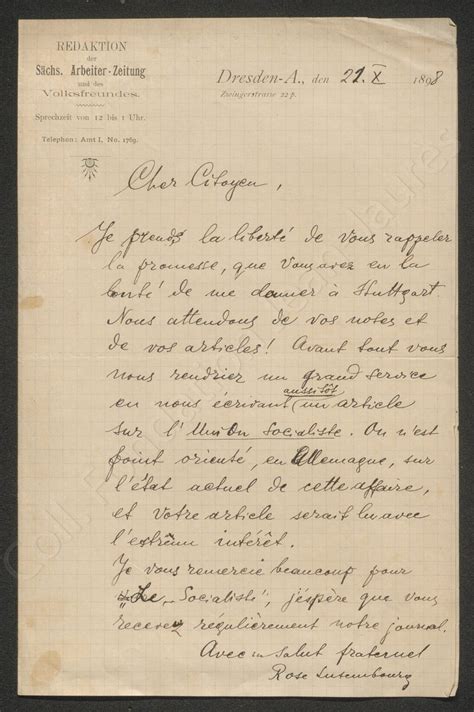 REDAKTION
der
Sächs. Arbeiter-Zeitung
und des
Volksfreundes.
Sprechzeit von 12 bis 1 Uhr.
Telephon: Amt I, No. 1769.
Dresden-A., den 21. X 1898
Zwingerstrasse 22 p.
Cher Citoyen,
Je prends la liberté de vous rappeler
la promesse, que vous avez eu la
bonté de me donner à Stuttgart.
Nous attendons de vos notes et
de vos articles! Avant tout vous
nous rendriez un grand service
en nous écrivant aussitôt un article
sur l'Union Socialiste. On n'est
point orienté, en Allemagne, sur
l'état actuel de cette affaire,
et votre article serait lu avec
l'extrêm intérêt.
Je vous remercie beaucoup pour
"Le Socialiste", j'espère que vous
recevez regulièrement notre journal.
Avec un salut fraternel
Rose Luxembourg